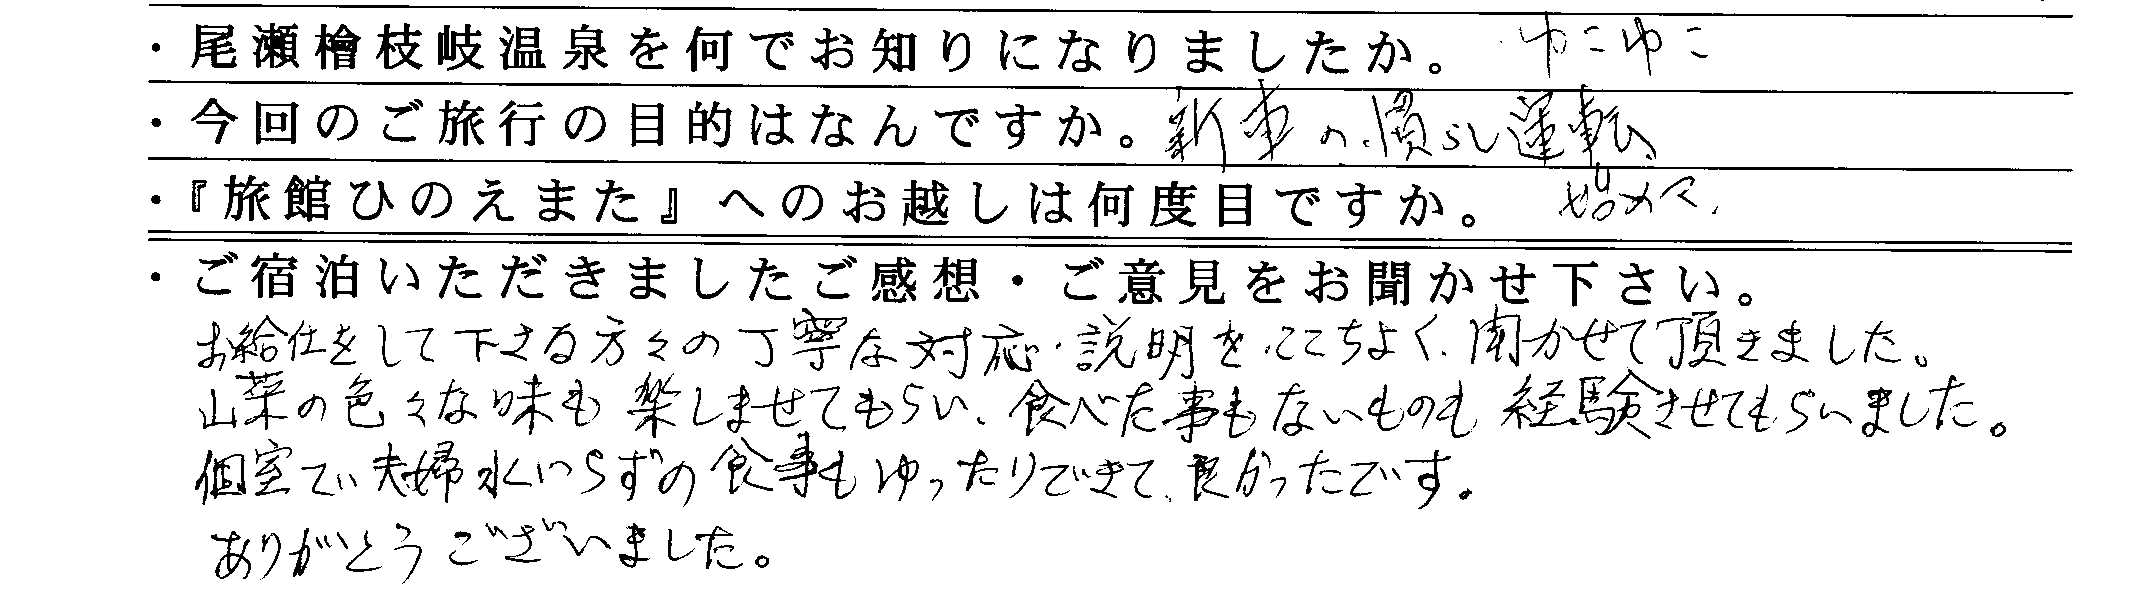 ・尾瀬檜枝岐温泉を何でお知りになりましたか。 ゆこゆこ
・今回のご旅行の目的はなんですか。新車の慣らし運転
・『旅館ひのえまた』へのお越しは何度目ですか。 始めて.
・ご宿泊いただきましたご感想・ご意見をお聞かせ下さい。
お給仕をして下さる方々の丁寧な対応・説明をここちよく聞かせて頂きました。
山菜の色々な味も楽しませてもらい、食べた事もないものも経験させてもらいました。
個室で夫婦水いらずの食事もゆったりできて、良かったです。
ありがとうございました。